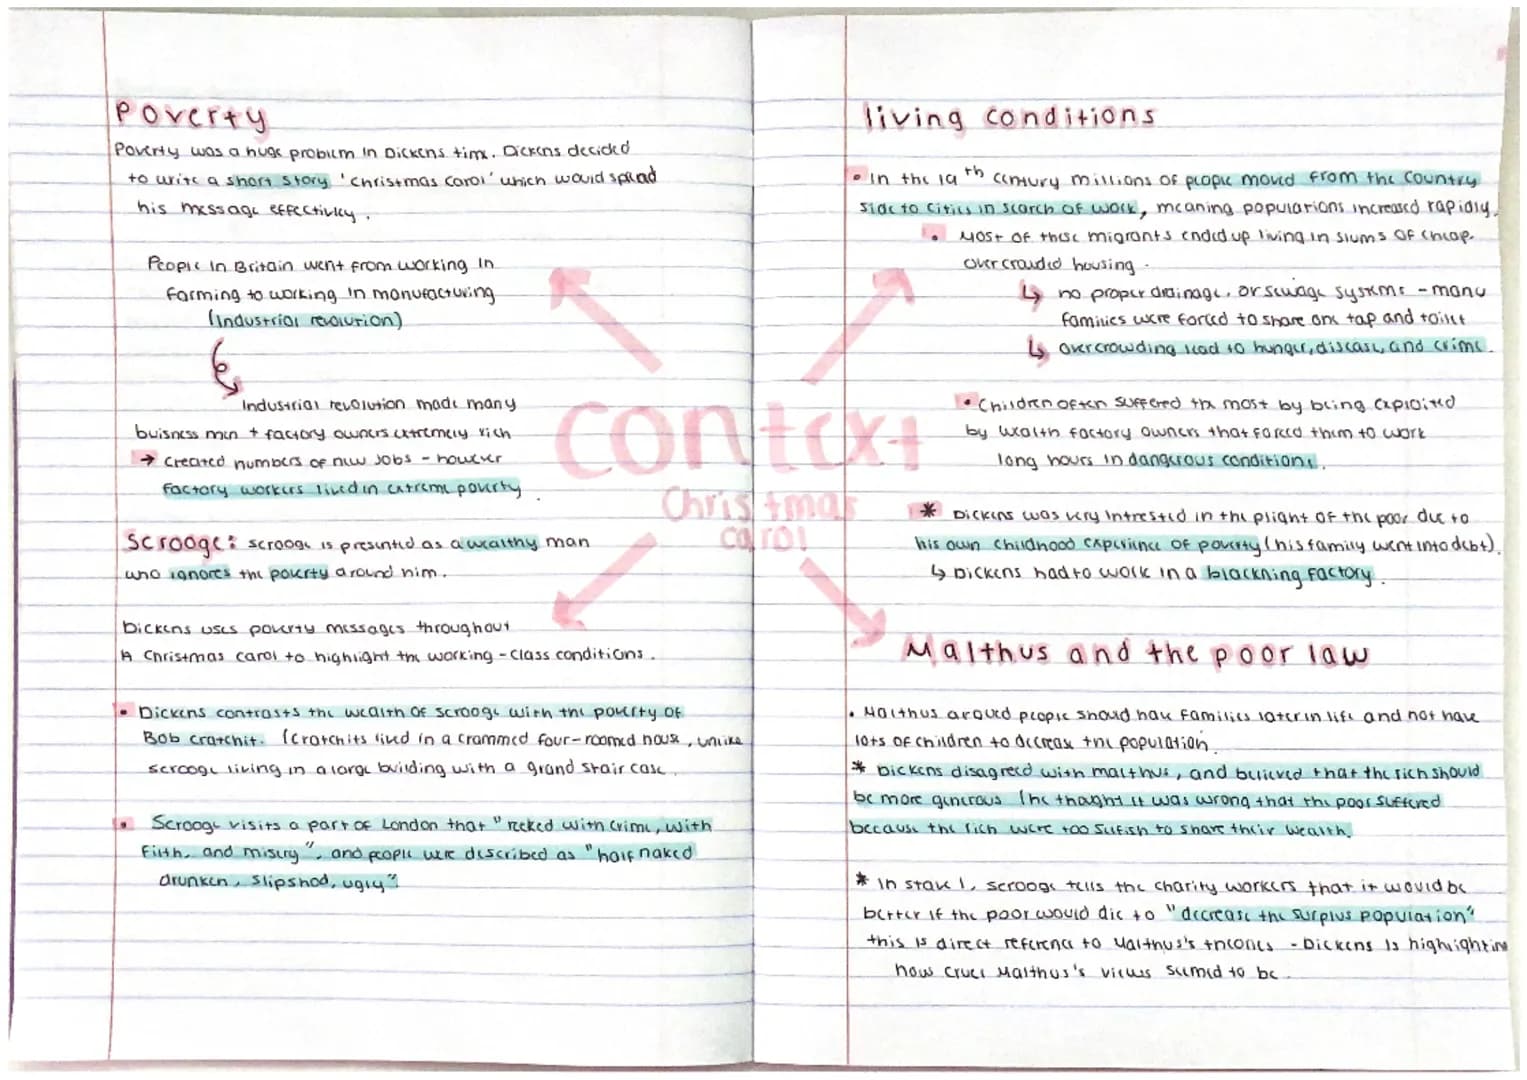 Poverty
Poverty was a huge problem in Dickens time. Dickens decided
to write a short story 'Christmas Carol' which would spread
his message effectivley.
People in Britain went from working in
farming to working in manufacturing
(Industrial revolution)
Industrial revolution made many
buisness men + factory owners extremely rich
→ created numbers of new jobs - however
factory workers lived in extreme poverty.
Scrooge: scrooge is presented as a wealthy man
who ignores the poverty around him.
Dickens uses poverty messages throughout
A Christmas carol to highlight the working-class conditions.
• Dickens contrasts the wealth of scrooge with the poverty of
Bob cratchit. (cratchits lived in a crammed four-roomed house, unlike
scrooge living in a large building with a grand stair case.
• Scrooge visits a part of London that "reeked with crime, with
filth, and misery", and people were described as "half naked
drunken, slipshod, ugly".
context
Christmas
carol
living conditions
• In the 19th century millions of people moved from the country
side to cities in search of work, meaning populations increased rapidly.
• Most of these migrants ended up living in slums of cheap.
overcrowded housing.
↳ no proper drainage, or sewage systems - many
families were forced to share one tap and toilet
↳ overcrowding lead to hunger, disease, and crime.
• Children often suffered the most by being exploited
by wealth factory owners that forced them to work
long hours in dangerous conditions.
* Dickens was very intrested in the plight of the poor due to
his own childhood experience of poverty (his family went into debt).
↳ Dickens had to work in a blackning factory.
Malthus and the poor law
• Malthus argued people should have families later in life and not have
lots of children to decrease the population.
* Dickens disagreed with malthus, and believed that the rich should
be more generous (he thought it was wrong that the poor suffered
because the rich were too selfish to share their wealth.
* In stave 1, scrooge tells the charity workers that it would be
better if the poor would die to "decrease the surplus population"
this is direct reference to Malthus's theories - Dickens is highlighting
how cruel Malthus's views seemed to be.